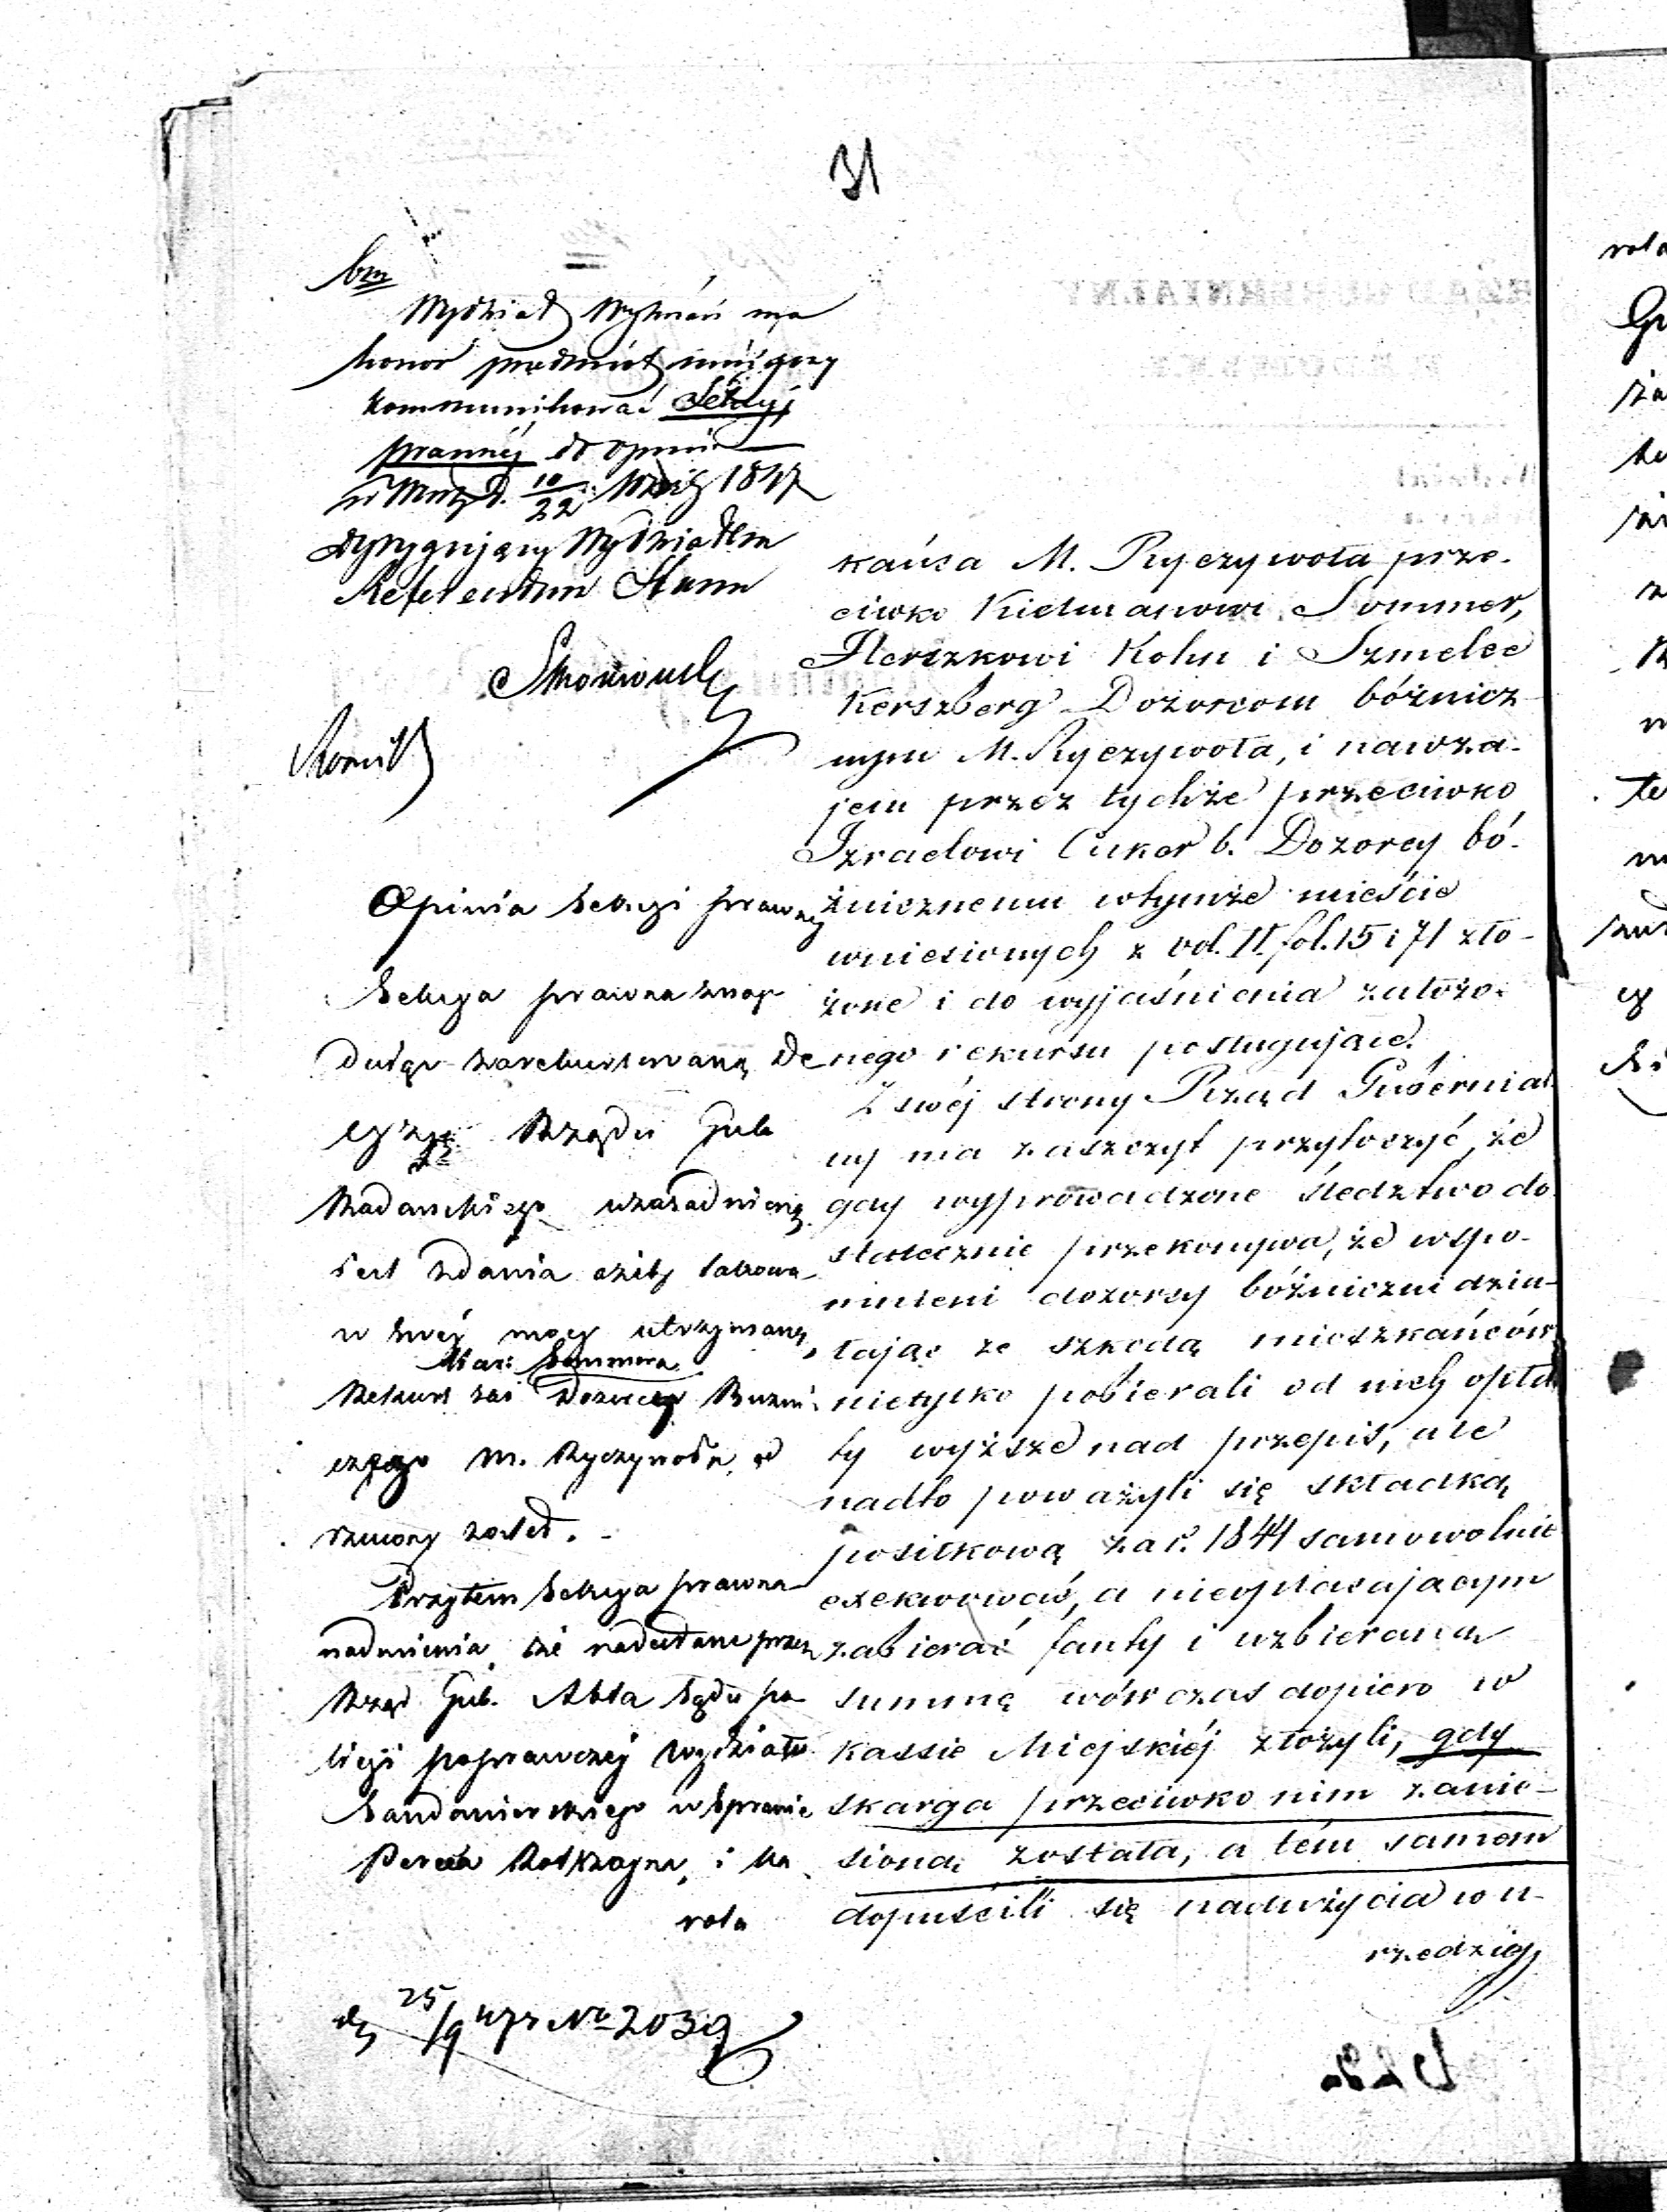 31
bm
Wydział Wyznań ma
honor przedmiot niniejszy
kommunikować Sekcyi
prawnéj do opinii
w Warsz. d. 10/22 1847
Dyrygujący Wydziałem
Referendarz Stanu
Opinia Sekcyi prawnej
Sekcya prawna znaj
dując zarekursowaną De
cyzyę Rządu Gub
Radomskiego uzasadnioną
jest zdania ażeby takowa
w swéj mocy utrzymaną,
Mar: Sommera
Rekurs zaś Dozorcy Bużni
czego M. Ryczywoła, od
rzucony został. -
Przytem Sekcya prawna
nadmienia, że nadesłane przez
Rząd Gub. Akta Sądu po
licyi poprawczej wydziału
Sandomierskiego w sprawie
i Ka
rola
25/9 47 r No 2039
kańca M. Ryczywoła prze-
ciwko Kielmanowi Sommer,
Herszkowi Kohn i Szmelce
Kerszberg Dozorcom bóżnicz
nym M. Ryczywoła, i nawza-
jem przez tychże przeciwko
Izraelowi Cukor b. Dozorcy bó-
żnicznemu w tymże mieście
wniesionych z vol. II. fol. 15 i 71 zło-
żone i do wyjaśnienia założo-
nego rekursu posługujące.
Z swéj strony Rząd Gubernial
ny ma zaszczyt przytoczyć, że
gdy wyprowadzone śledztwo do
statecznie przekonywa, że wspo-
mnieni dozorcy bóżniczni dzia-
łając ze szkodą mieszkańców
nietylko pobierali od nich opła
ty wyższe nad przepis, ale
nadto poważyli się składkę
posiłkową za r. 1844 samowolnie
exekwować, a nieopłacającym
zabierać fanty i uzbieraną
summę wówczas dopiero w
kassie Miejskiéj złożyli, gdy
skarga przeciwko nim zanie-
sioną została, a tém samem
dopuścili się nadużycia w u-
rzędzie,